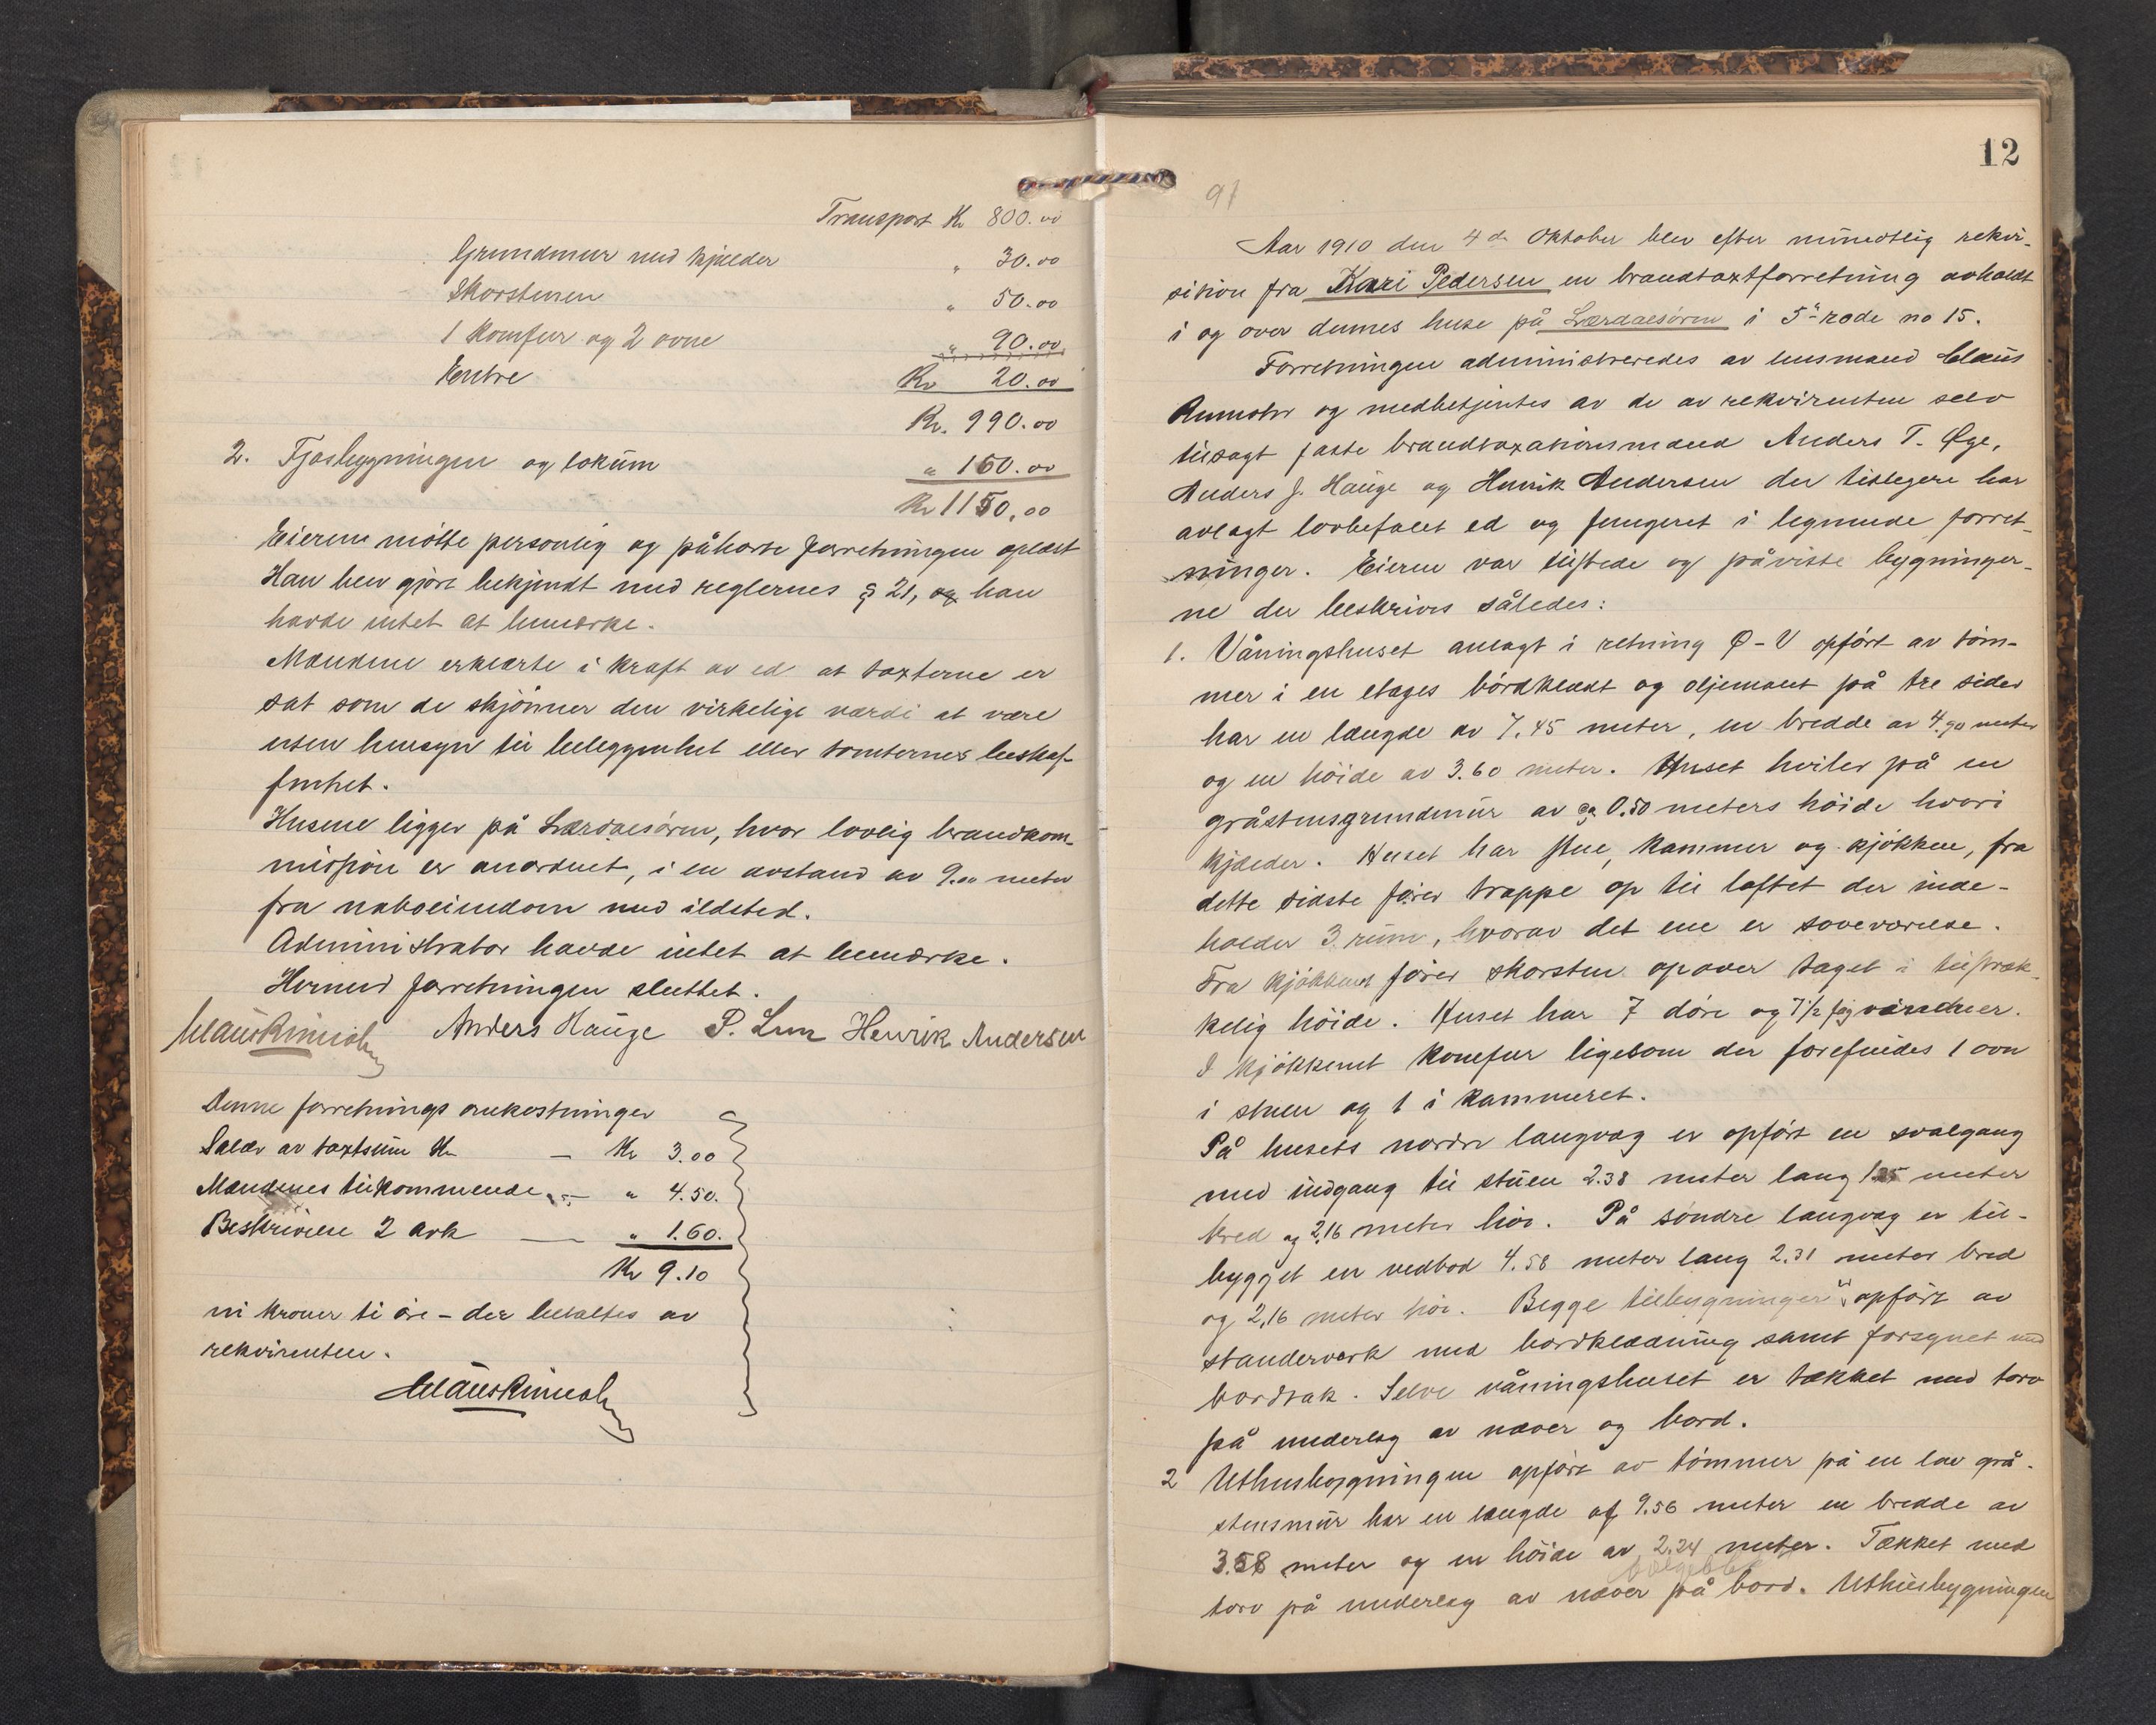 Transport Kr 800.00
Grundmur med kjælder " 30.00
Skorstenen " 50.00
1 Komfur og 2 ovne " 90.00
Entre Kr 20.00
Kr. 990.00
2. Fjøsbygningen og lokum " 160.00
Kr 1150,00
Eieren møtte personlig og påhørte forretningen oplæst
Han blev gjort bekjendt med reglernes § 21, og han
havde intet at bemærke.
Mændene erklærte i kraft av ed at taxterne er
sat som de skjønner den virkelige værdi at være
uten hensyn til beliggenhet eller tomternes beskaf-
fenhet.
Husene ligger på Lærdalsøren, hvor lovlig brandkom-
mission er anordnet, i en avstand av 9.00 meter
fra naboeiendom med ildsted.
Administrator havde intet at bemærke.
Hermed forretningen sluttet.
Claus Rumohr Anders Hauge P. Lem Henrik Andersen
Denne forretnings omkostninger
Salær av taxtsum Kr — Kr 3.00
Mændenes tilkommende — " 4.50.
Beskrivelse 2 ark — " 1.60.
Kr 9.10
ni kroner ti øre – der betaltes av
rekvirenten.
Claus Rumohr
12
91
Aar 1910 den 4de Oktober blev efter mundtlig rekvi-
sision fra Kari Pedersen en brandtaxtforretning avholdt
i og over dennes huse på Lærdalsøren i 5te rode no 15.
Forretningen administreredes av lensmand Claus
Rumohr og medbetjentes av de av rekvirenten selv
tilsagt faste brandtaxationsmænd Anders T. Øge,
Anders J. Hauge og Henrik Andersen der tidligere har
avlagt lovbefalet ed og fungeret i lignende forret-
ninger. Eieren var tilstede og påviste bygninger-
ne der beskrives således:
1. Våningshuset anlagt i retning Ø-V opført av tøm-
mer i en etages bordklædt og oljemalt på tre sider
har en længde av 7.45 meter, en bredde av 4.90 meter
og en høide av 3.60 meter. Huset hviler på en
gråstensgrundmur av ca 0.50 meters høide hvori
kjælder. Huset har stue, kammer og kjøkken, fra
dette sidste fører trappe op til loftet der inde-
holder 3 rum, hvorav det ene er soveværelse.
Fra kjøkkenet fører skorsten op over taget i tilstræk-
kelig høide. Huset har 7 døre og 7 1/2 fag vinduer.
I kjøkkenet komfur ligesom der forefindes 1 ovn
i stuen og 1 i kammeret.
På husets nordre langvæg er opført en svalgang
med indgang til stuen 2.38 meter lang 1.25 meter
bred og 2,16 meter høi. På søndre langvæg er til-
bygget en vedbod 4.58 meter lang 2.31 meter bred
og 2,16 meter høi. Begge tilbygninger er opført av
standerverk med bordklædning samt forsynet med
bordtak. Selve våningshuset er tækket med torv
på underlag av næver og bord.
2 Uthusbygningen opført av tømmer på en lav grå-
stensmur har en længde af 9.56 meter en bredde av
3.58 meter og en høide av 2.24 meter. Tækket med
torv på underlag av næver på bord. Uthusbygningen